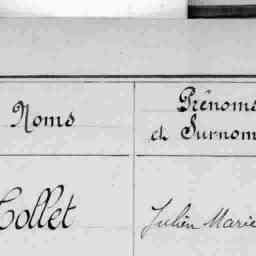 Noms
Prénoms
et Surnom
Collet
Julien Marie